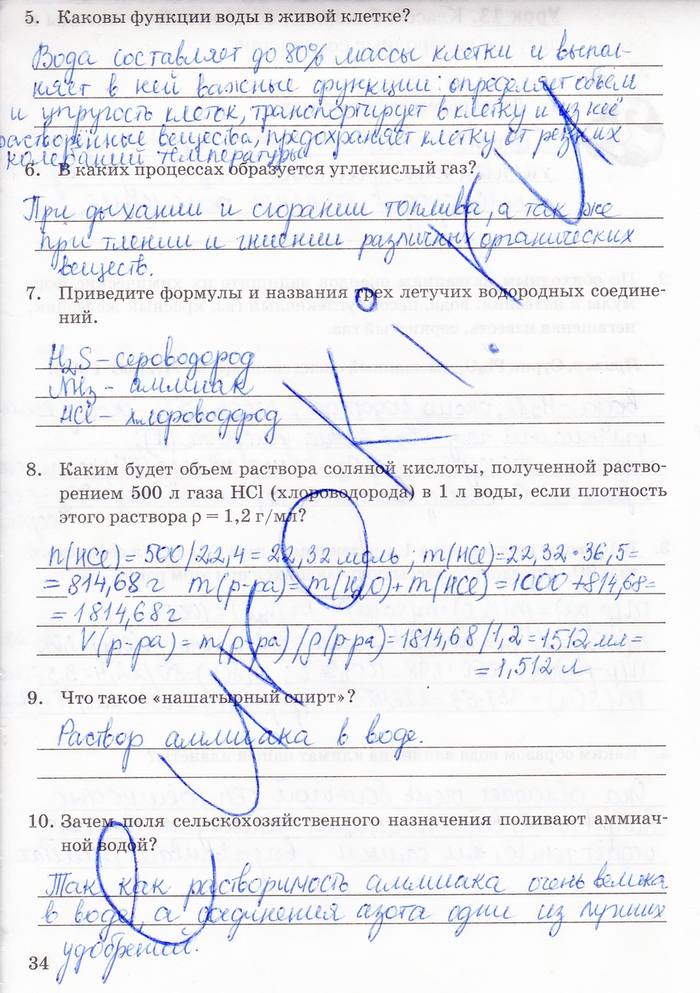 5. Каковы функции воды в живой клетке?
Вода составляет до 80% массы клетки и выпол-
няет в ней важные функции: определяет объем
и упругость клеток, транспортирует в клетку и из неё
растворённые вещества, предохраняет клетку от резких
колебаний температуры
6. В каких процессах образуется углекислый газ?
При дыхании и сгорании топлива, а так же
при тлении и гниении различных органических
веществ.
7. Приведите формулы и названия трех летучих водородных соедине-
ний.
H₂S - сероводород
NH₃ - аммиак
HCl - хлороводород
8. Каким будет объем раствора соляной кислоты, полученной раство-
рением 500 л газа HCl (хлороводорода) в 1 л воды, если плотность
этого раствора ρ = 1,2 г/мл?
n(HCl) = 500/22,4 = 22,32 моль; m(HCl) = 22,32 · 36,5 =
= 814,68 г m(р-ра) = m(H₂O) + m(HCl) = 1000 + 814,68 =
= 1814,68 г
V(р-ра) = m(р-ра)/ρ(р-ра) = 1814,68/1,2 = 1512 мл =
= 1,512 л
9. Что такое «нашатырный спирт»?
Раствор аммиака в воде.
10. Зачем поля сельскохозяйственного назначения поливают аммиач-
ной водой?
Так как растворимость аммиака очень велика
в воде, а соединения азота одни из лучших
удобрений.
34